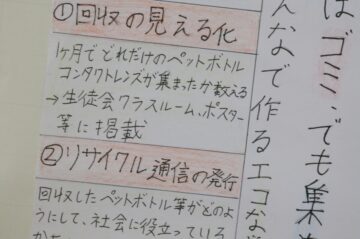 はゴミでも集
んなで作るエコな
①回収の見える化
1ヶ月でどれだけのペットボトル
コンタクトレンズが集まったか数える
→生徒会クラスルーム、ポスター
等に掲載
②リサイクル通信の発行
回収したペットボトル等がどのよ
うにして、社会に役立っている